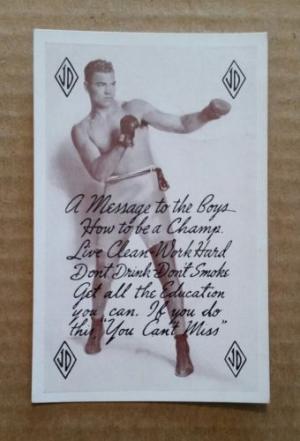 JD JD
A Message to the Boys
How to be a Champ.
Live Clean-Work Hard
Dont Drink-Dont Smoke
Get all the Education
you can. If you do
this "You Cant Miss"
JD JD